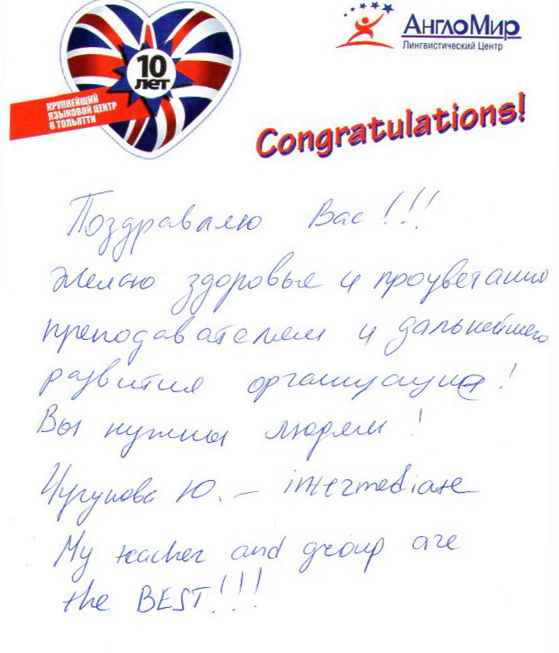 10
лет
КРУПНЕЙШИЙ
ЯЗЫКОВОЙ ЦЕНТР
В ТОЛЬЯТТИ
АнглоМир
Лингвистический Центр
Congratulations!
Поздравляю Вас!!!
Желаю здоровье и процветания
преподавателям и дальнейшего
развития организации!
Вы нужны людям!
Чугунова Ю. – intermediate
My teacher and group are
the BEST!!!